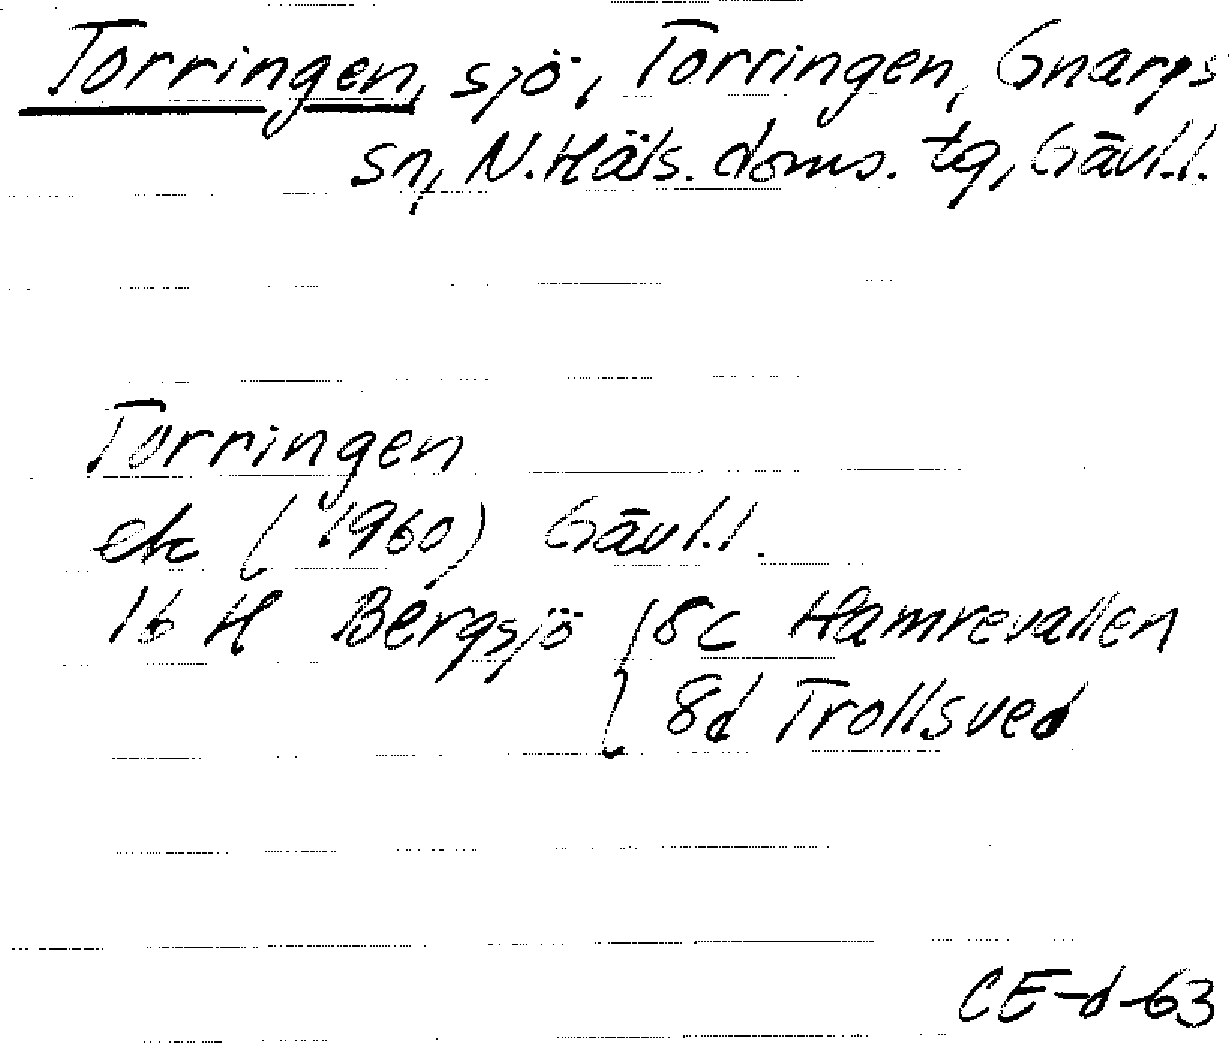 Torringen, sjö, Torringen, Gnarps
sn, N. Häls. doms. tg, Gävl.l.
Torringen
ek (1960) Gävl.l.
16 H Bergsjö { 8c Hamrevallen
8d Trollsved
CE-d-63